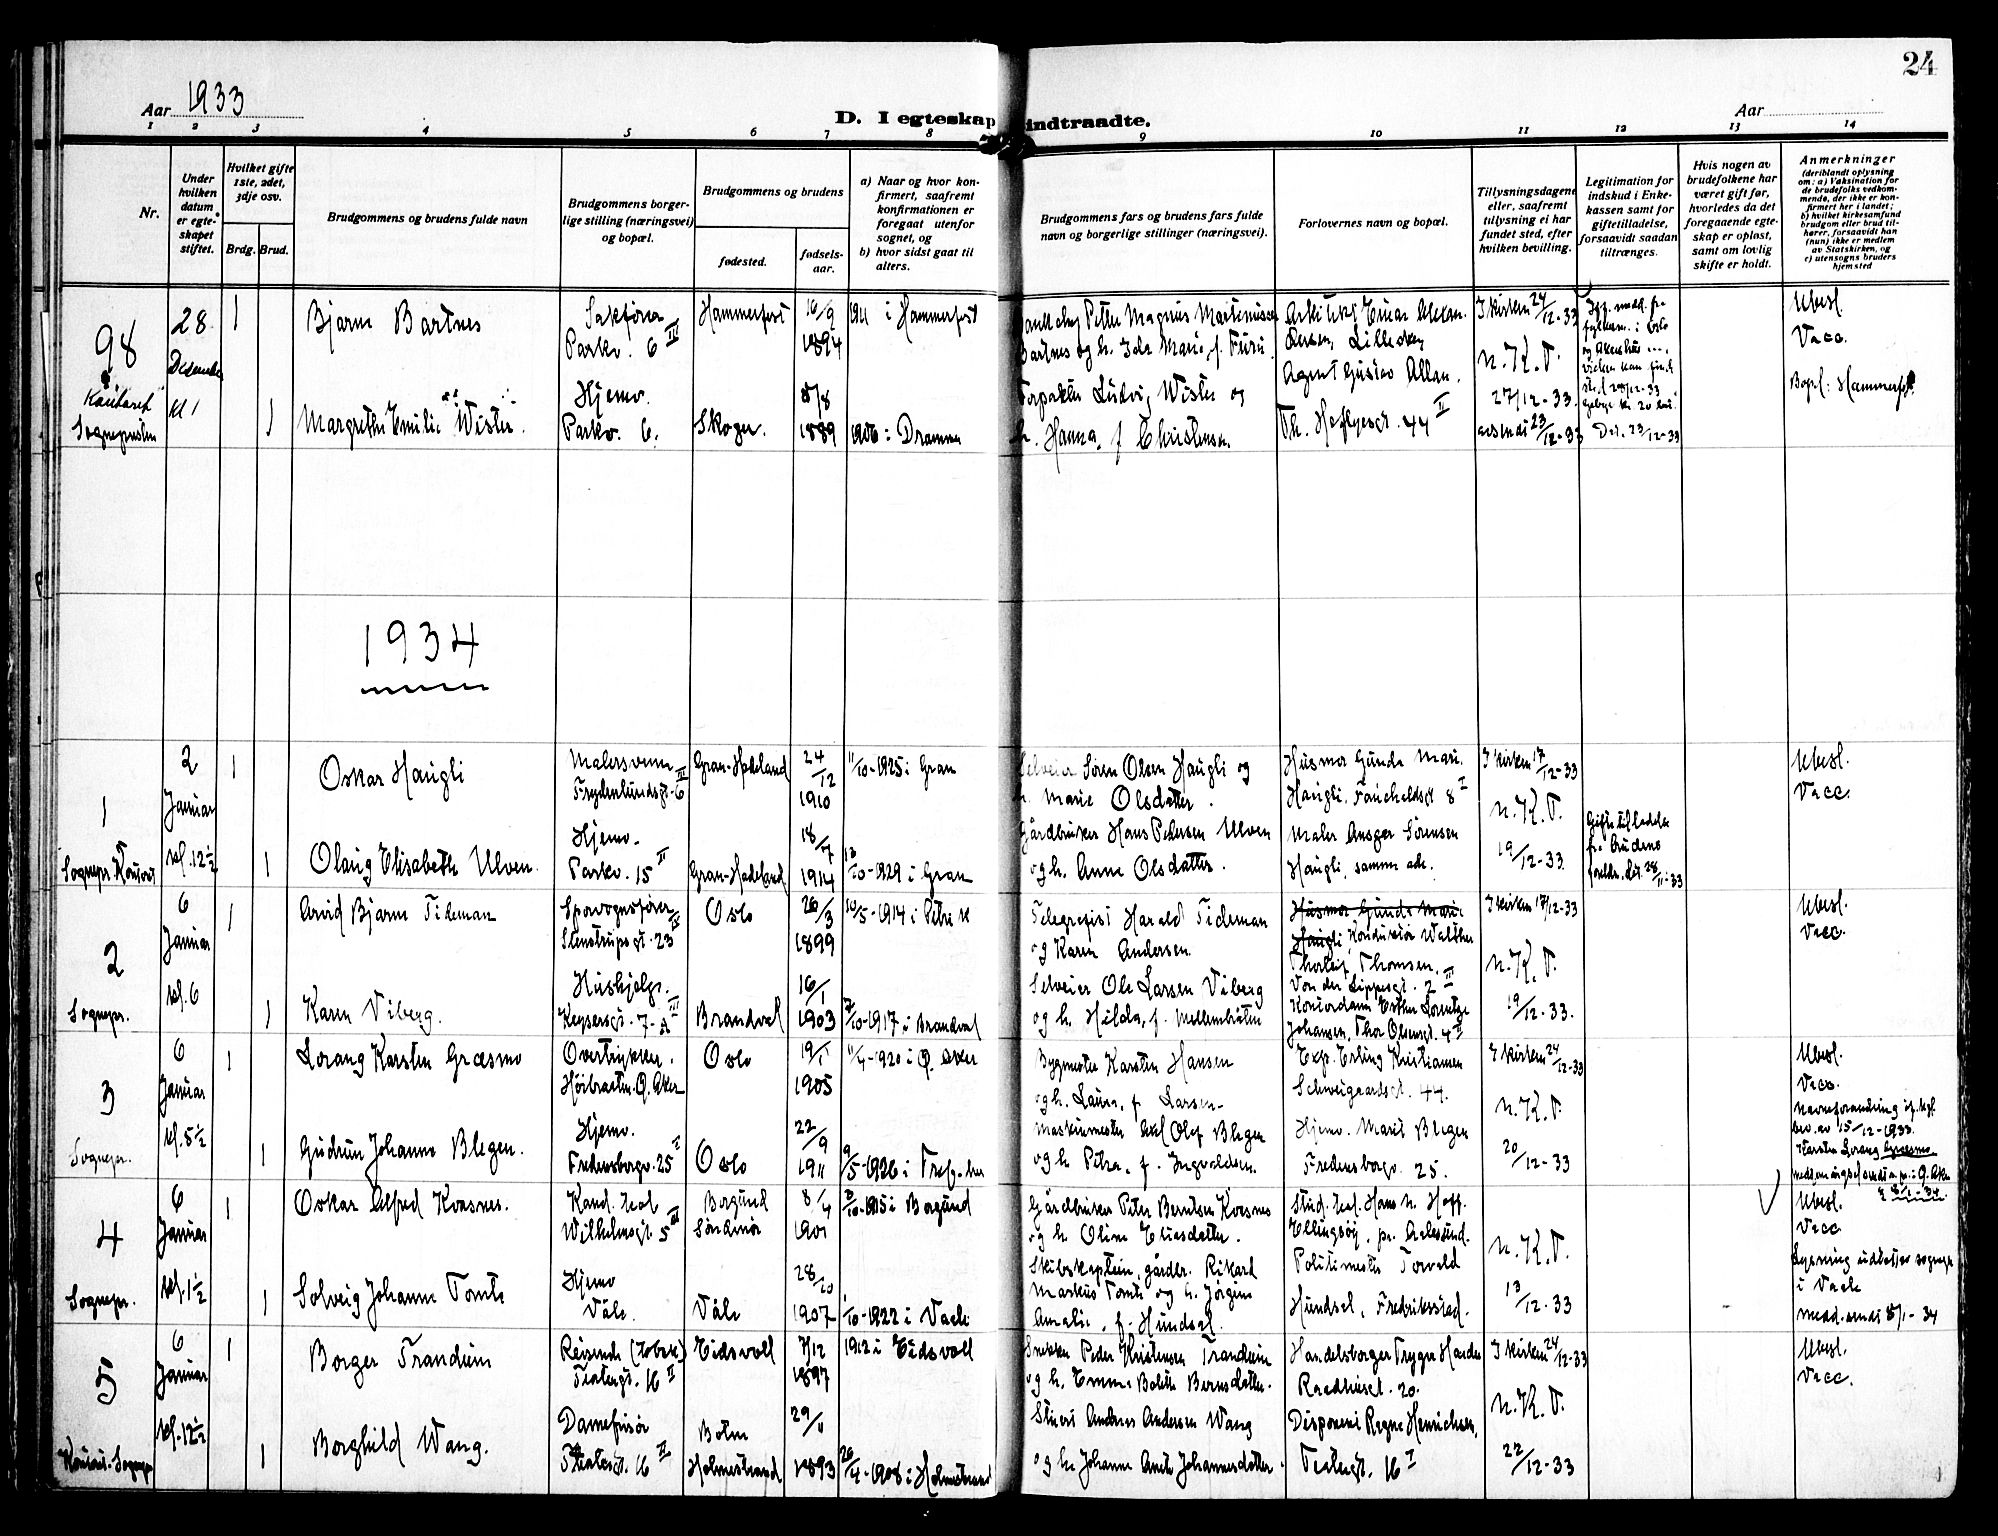 24
Aar 1933
D. I egteskap indtraadte.
Aar
1 2 3 4 5 6 7 8 9 10 11 12 13 14
Nr.
Under
hvilken
datum
er egte-
skapet
stiftet.
Hvilket gifte
1ste, 2det,
3dje osv.
Brdg.
Brud.
Brudgommens og brudens fulde navn
Brudgommens borger-
lige stilling (næringsvei)
og bopæl.
Brudgommens og brudens
fødested.
fødsels-
aar.
a) Naar og hvor kon-
firmert, saafremt
konfirmationen er
foregaat utenfor
sognet, og
b) hvor sidst gaat til
alters.
Brudgommens fars og brudens fars fulde
navn og borgerlige stillinger (næringsvei).
Forlovernes navn og bopæl.
Tillysningsdagene
eller, saafremt
tillysning ei har
fundet sted, efter
hvilken bevilling.
Legitimation for
indskud i Enke-
kassen samt for
giftetilladelse,
forsaavidt saadan
tiltrænges.
Hvis nogen av
brudefolkene har
været gift før,
hvorledes da det
foregaaende egte-
skap er opløst,
samt om lovlig
skifte er holdt.
Anmerkninger
(deriblandt oplysning
om: a) Vaksination for
de brudefolks vedkom-
mende, der ikke er kon-
firmert her i landet;
b) hvilket kirkesamfund
brudgom eller brud til-
hører, forsaavidt han
(hun) ikke er medlem
av Statskirken, og
c) utensogns bruders
hjemsted
98
28
Desember
kl 1
1
Bjarne Bartnes
Sakfører
Parkv. 6 III
Hammerfest
16/9
1894
1911 i Hammerfest
Petter Magnus Martinussen
Bartnes og h. Ida Marie, f.
Einar
I kirken 24/12-33
n. K. T.
Ubesl.
Vacc.
1
Margrethe Emilie Wister
Hjemv.
Parkv. 6.
Skoger.
8/8
1889
1906 i Drammen
Forpakter Ludvig Wister og
h. Hanna, f Christensen
Agent Gustav Allan.
Th. Heftyesgt. 44 II
27/12-33.
23/12-33
Dat. 23/12-33
1934
1
2
Januar
kl. 12½
1
Oskar Haugli
Malersvenn
Frydenlundsgt. 6 III
Gran-Hadeland
24/12
1910
11/10-1925 i Gran
Selveier Søren Olsen Haugli og
h. Marie Olsdatter.
Husmor Gunda Marie
Haugli, Faucheldsgt 8 I
I kirken 17/12-33
n. K. T.
Ubesl.
Vacc.
1
Olaug Elisabeth Ulven.
Hjemv.
Parkv. 15 II
Gran-Hadeland
18/7
1914
13/10-1929 i Gran
Gårdbruker Hans Pedersen Ulven
og h. Anne Olsdatter.
Maler Ansgar Sørensen
Haugli, samme adr.
19/12-33.
Giftetilladelse
fra brudens
foreldre. dat. 28/11-33
2
6
Januar
kl. 6
Sognepr.
1
Arvid Bjarne Tideman
Sporvognsfører
Stenstrupsgt. 23 IV
Oslo
26/3
1899
10/5-1914 i Petri k
Telegrafist Harald Tideman
og Karen Andersen.
Husmor Gunda Marie
Haugli Konduktør Walther
Thorleif Thomsen,
Von der Lippesgt. 2 II
I kirken 17/12-33
n. K. T.
Ubesl.
Vacc.
1
Karen Viberg.
Hushjelp.
Keysersgt. 7-A
Brandval
16/1
1903
7/10-1917 i Brandval
Selveier Ole Larsen Viberg
og h. Hilda, f. Mellembråten
Kontordame Esther Lorentze
Johansen, Thor Olsensgt. 4 II
19/12-33.
3
6
Januar
kl. 5½
Sognepr.
1
Lorang Karsten Græsmo
Overtrykker.
Høibraaten. Ø. Aker
Oslo
19/1
1905
11/4-1920 i Ø. Aker
Bygmester Karsten Hansen
og h. Laura, f. Larsen.
Exp. Erling Kristiansen
Schweigaardsgt. 44.
I kirken 24/12-33
n. K. T.
Ubesl.
Vacc.
Navneforandring if. kgl.
bev. av 15/12-1933.
Karsten Lorang Græsmo
1
Gudrun Johanne Blegen.
Hjemv.
Fredensborgv. 25 I
Oslo
22/9
1911
9/5-1926 i
Maskinmester Axel Olaf Blegen
og h Petra, f. Ingvaldsen.
Hjemv. Marit Blegen
Fredensborgv. 25.
20/12-33
4
6
Januar
kl. 1½
Sognepr.
1
Oskar Alfred Korsnes.
Kand. teol
Wilhelmsgt. 5 III
Borgund
Søndmør
8/4
1901
3/10-1915 i Borgund
Gårdbruker Peter Berntsen Korsnes
og h Oline Eliasdatter.
Stud. teol. Hans N. Hoff.
Ellingsøy, pr. Aalesund.
n. K. T.
Ubesl.
Vacc
1
Solveig Johanne Tomte
Hjemv
Våle.
Våle
28/10
1907
1/10-1922 i Vaale
Skibskaptein, gårdbr. Rikard
Markus Tomte og h. Jørgine
Amalie, f. Hundsal.
Politimester Torvald
Hundsal, Fredriksstad.
13/12-33
Lysning utbetjer sognepr
i Vaale
medd. sendt 8/1-34
5
6
Januar
kl. 12½
Kontoret. Sognepr
1
Borger Trandum
Reisende (tobak)
Tidemgt. 16 II
Eidsvoll
7/12
1897
1912 i Eidsvoll
Snekker Peder Kristensen Trandum
og h. Emma Bolette Berntsdatter.
Handelsborger Trygve Harder
Raadhusgt. 20.
I kirken 24/12-33
n. K. T.
Ubesl.
Vacc.
1
Borghild Wang.
Damefrisør
16 II
Botne
Holmestrand
29/1
1893
26/4-1908 i Holmestrand
Stuert Andreas Andersen Wang
og h. Johanne Anette Johannesdatter
Disponent Ragna Henrichsen,
16 I
22/12-33